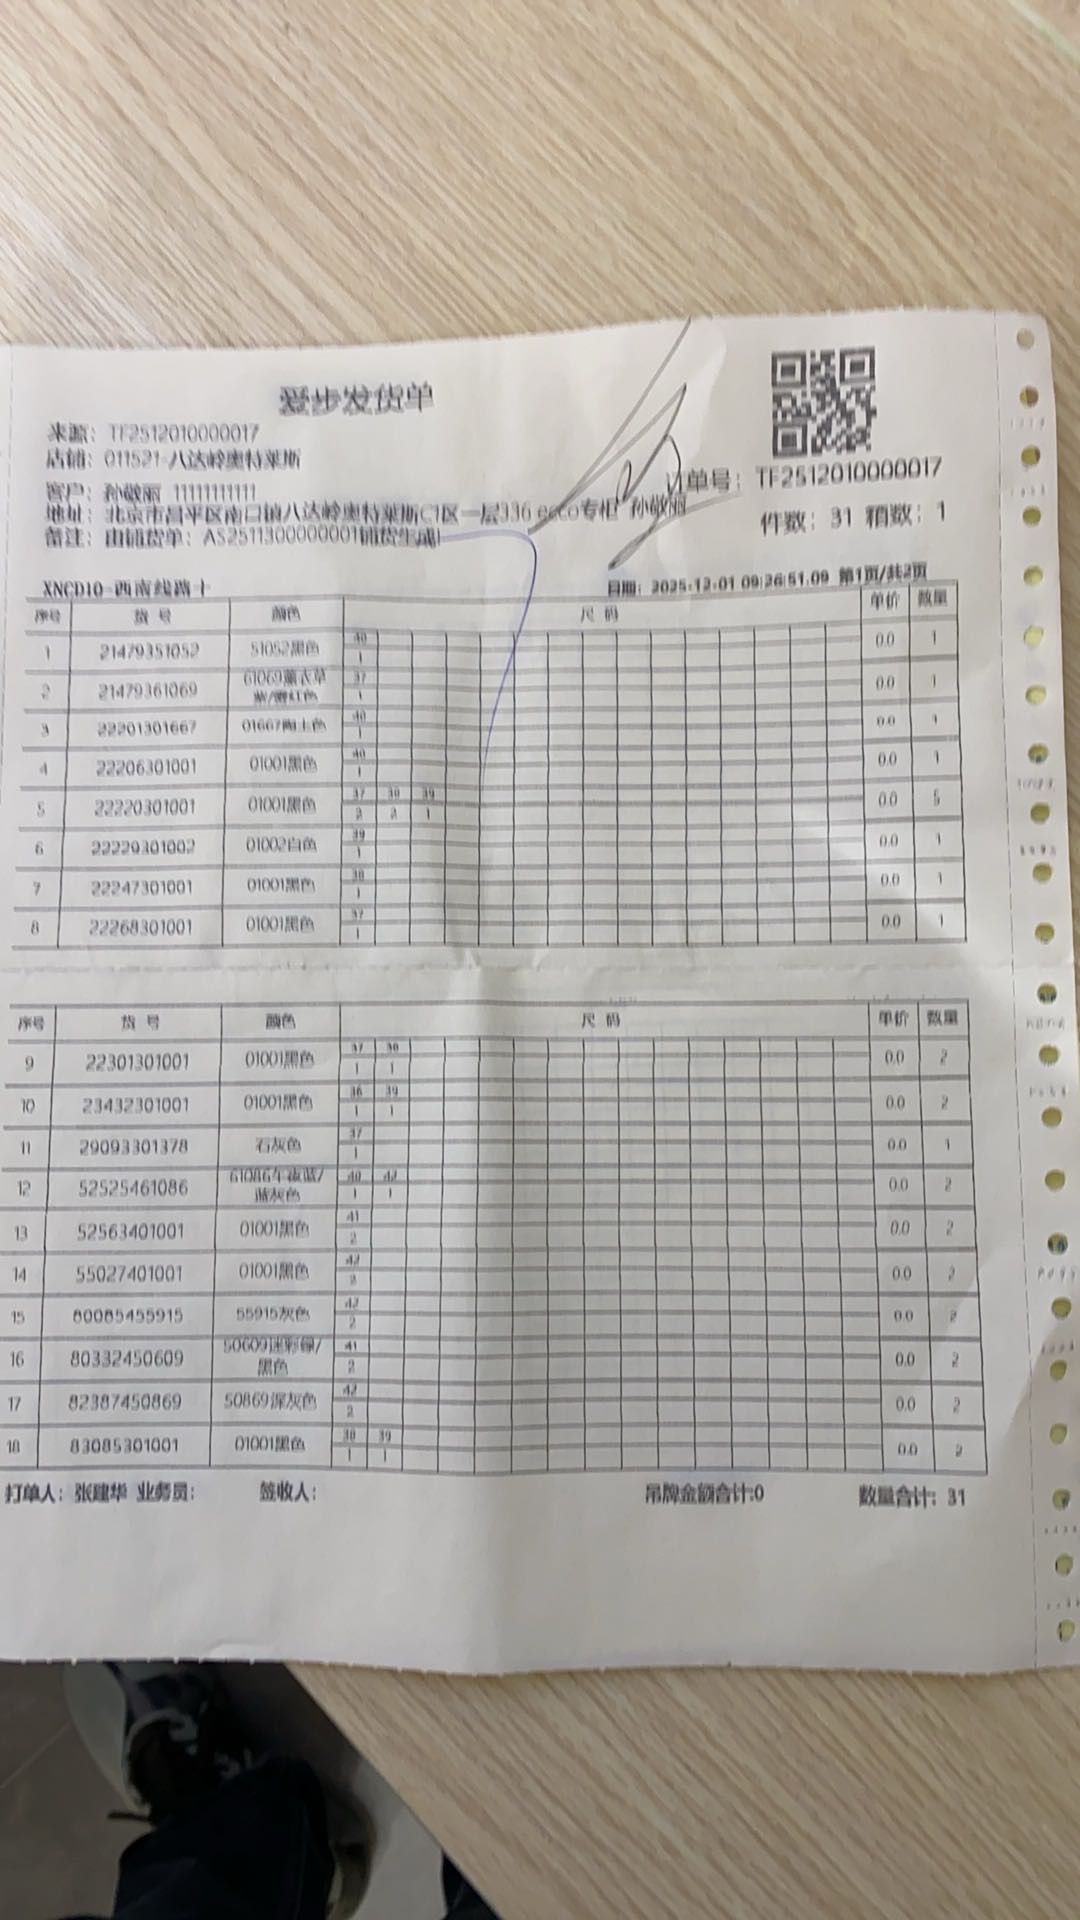 爱步发货单
来源：TF2512010000017
店铺：011521-八达岭奥特莱斯
订单号：TF2512010000017
客户：孙敬丽 11111111111
地址：北京市昌平区南口镇八达岭奥特莱斯C1区一层336 ecco专柜 孙敬丽
件数：31 箱数：1
备注：由铺货单：AS2511300000001铺货生成!
XNCD10-西南线路十
日期：2025-12-01 09:26:51.09 第1页/共2页
序号 货号 颜色 尺码 单价 数量
40
1 21479351052 51052黑色 0.0 1
1
37
2 21479361069 61069薰衣草紫/霞红色 0.0 1
1
40
3 22201301667 01667陶土色 0.0 1
1
40
4 22206301001 01001黑色 0.0 1
1
37 38 39
5 22220301001 01001黑色 0.0 5
2 2 1
39
6 22229301002 01002白色 0.0 1
1
38
7 22247301001 01001黑色 0.0 1
1
37
8 22268301001 01001黑色 0.0 1
1
序号 货号 颜色 尺码 单价 数量
37 38
9 22301301001 01001黑色 0.0 2
1 1
36 39
10 23432301001 01001黑色 0.0 2
1 1
37
11 29093301378 石灰色 0.0 1
1
40 42
12 52525461086 61086午夜蓝/蓝灰色 0.0 2
1 1
41
13 52563401001 01001黑色 0.0 2
2
42
14 55027401001 01001黑色 0.0 2
2
42
15 80085455915 55915灰色 0.0 2
2
41
16 80332450609 50609迷彩绿/黑色 0.0 2
2
42
17 82387450869 50869深灰色 0.0 2
2
38 39
18 83085301001 01001黑色 0.0 2
1 1
打单人：张建华 业务员： 签收人： 吊牌金额合计:0 数量合计：31